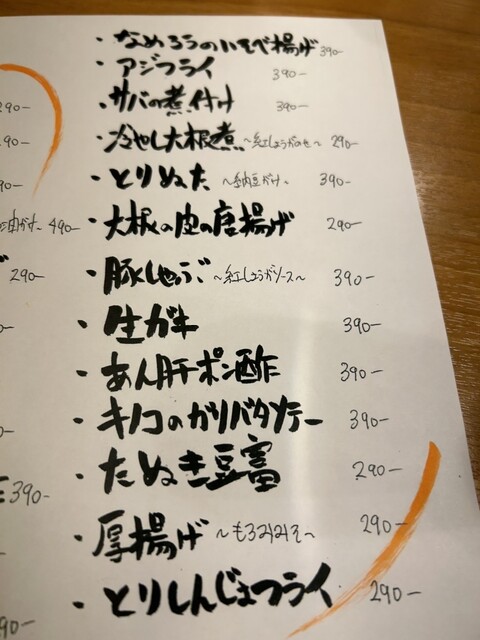 ・なめろうの小そば揚げ 390-
・アジフライ 390-
・サバの煮付け 390-
・冷やし大根煮 ~紅しょうがのせ~ 290-
・とりぬた ~納豆がけ~ 390-
・大根の皮の唐揚げ 290-
・豚しゃぶ ~紅しょうがソース~ 390-
・生ガキ 390-
・あん肝ポン酢 390-
・キノコのガリバタソテー 390-
・たぬき豆富 290-
・厚揚げ ~もろみみそ~ 290-
・とりしんじょうフライ 290-
290-
290-
490-
290-
390-